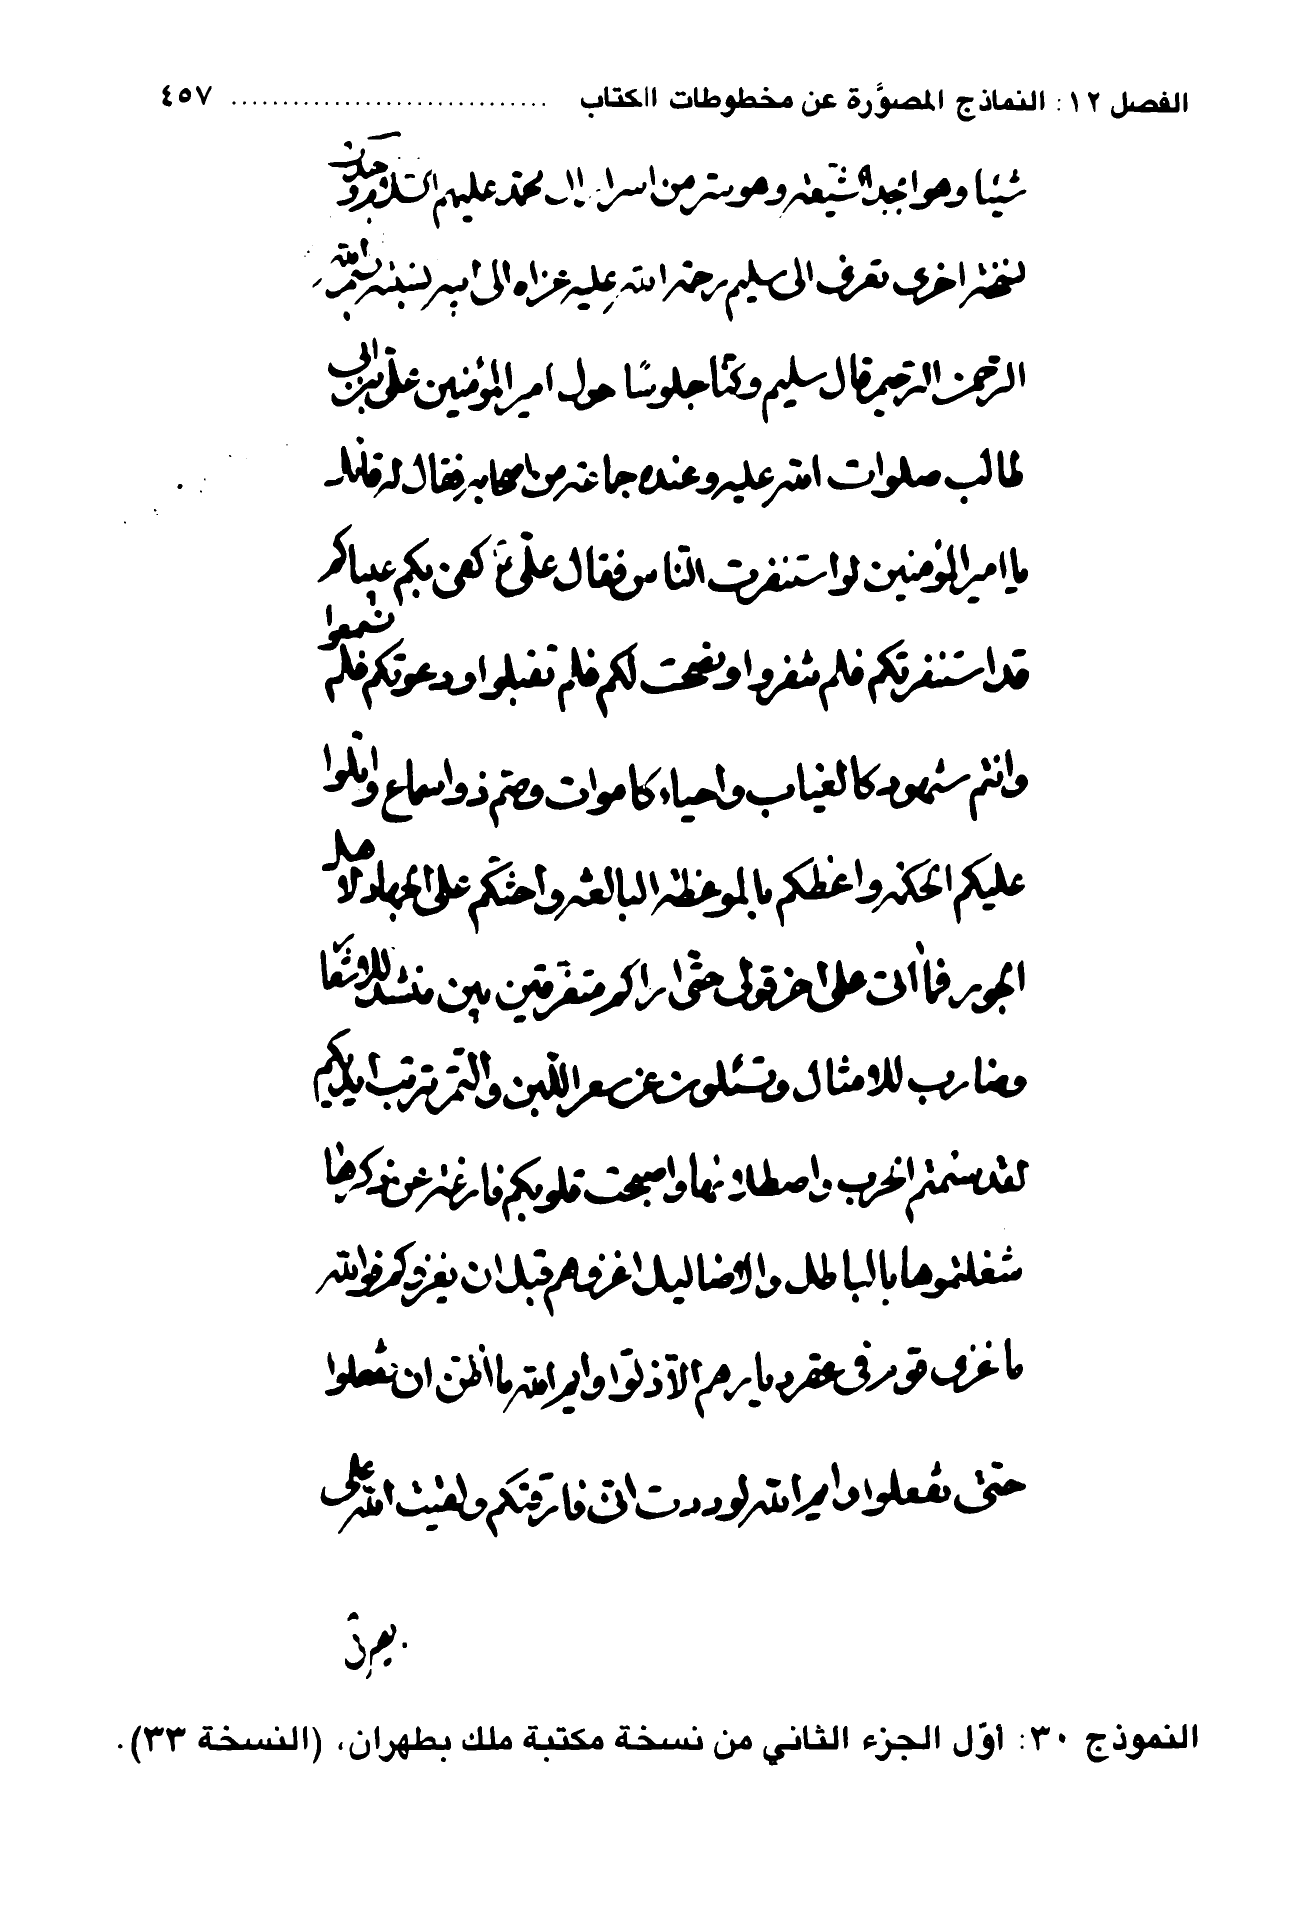 الفصل ١٢: النماذج المصوَّرة عن مخطوطات الكتاب .............................. ٤٥٧
شيئا وهو ابجد الشيعة وهو سر من اسرار ال محمد عليهم السلام
نسخة اخرى تعرف الى سليم رحمة الله عليه عزاه الى ابيه نسبته بسم الله
الرحمن الرحيم قال سليم وكنّا جلوسًا حول امير المؤمنين علىّ بن ابى
طالب صلوات الله عليه وعنده جماعة من اصحابه فقال له قائل
يا امير المؤمنين لو استنفرت النّاس فقال علىّ ع
قد استنفرتكم فلم تنفروا ونصحت لكم فلم تقبلوا ودعوتكم فلم تسمعوا
وانتم شهود كالغياب واحياء كاموات وصمّ ذوو اسماع واتلوا
عليكم الحكمة واعظكم بالموعظة البالغة واحثّكم على الجهاد لاهل
الجور فما اتى على اخر قولى حتّى اراكم متفرّقين بين منشد للاشعار
وضارب للامثال وتسئلون عن سعر اللّبن والتّمر تربت ايديكم
لقد سئمتم الحرب واصطلاء نيرانها واصبحت قلوبكم فارغة عن ذكرها
شغلتموها بالباطل والاضاليل اغزوهم قبل ان يغزوكم فوالله
ما غزى قوم فى عقر ديارهم الّا ذلّوا وايم الله ما اظنّ ان تفعلوا
حتىّ تفعلوا وايم الله لوددت انّى فارقتكم ولقيت الله على
النموذج ٣٠: أوّل الجزء الثاني من نسخة مكتبة ملك بطهران، (النسخة ٣٣).